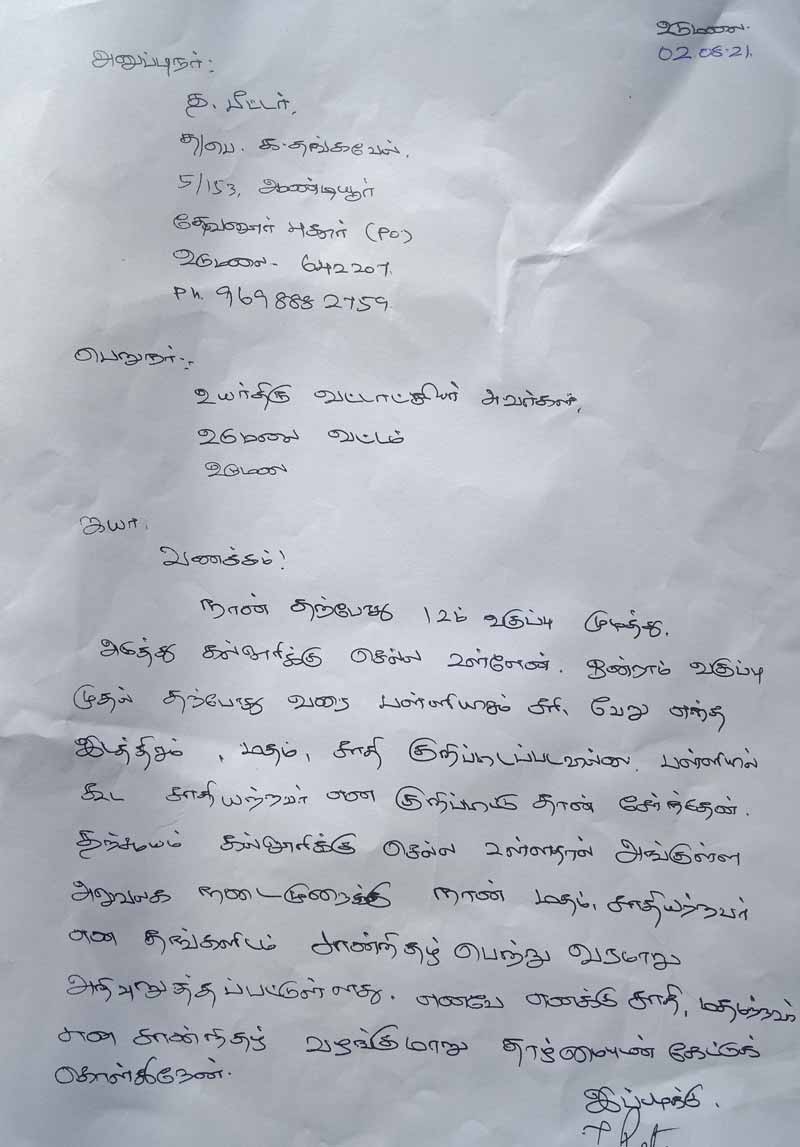 உடுமலை.
02.08.21.
அனுப்புநர்:
த. பீட்டர்,
த/பெ. க.தங்கவேல்,
5/153, ஆண்டியூர்
தேவனூர் புதூர் (PO)
உடுமலை - 642207.
Ph. 969 888 2759.
பெறுநர்:-
உயர்திரு வட்டாட்சியர் அவர்கள்,
உடுமலை வட்டம்
உடுமலை
ஐயா,
வணக்கம்!
நான் தற்போது 12ம் வகுப்பு முடித்து,
அடுத்து கல்லூரிக்கு செல்ல உள்ளேன். ஒன்றாம் வகுப்பு
முதல் தற்போது வரை பள்ளியிலும் சரி, வேறு எந்த
இடத்திலும், மதம், சாதி குறிப்பிடப்படவில்லை. பள்ளியில்
கூட சாதியற்றவர் என குறிப்பிட்டு தான் சேர்ந்தேன்.
தற்சமயம் கல்லூரிக்கு செல்ல உள்ளதால் அங்குள்ள
அலுவலக நடைமுறைக்கு நான் மதம், சாதியற்றவர்
என தங்களிடம் சான்றிதழ் பெற்று வருமாறு
அறிவுறுத்தப்பட்டுள்ளது. எனவே எனக்கு சாதி, மதமற்றவர்
என சான்றிதழ் வழங்குமாறு தாழ்மையுடன் கேட்டுக்
கொள்கிறேன்.
இப்படிக்கு,